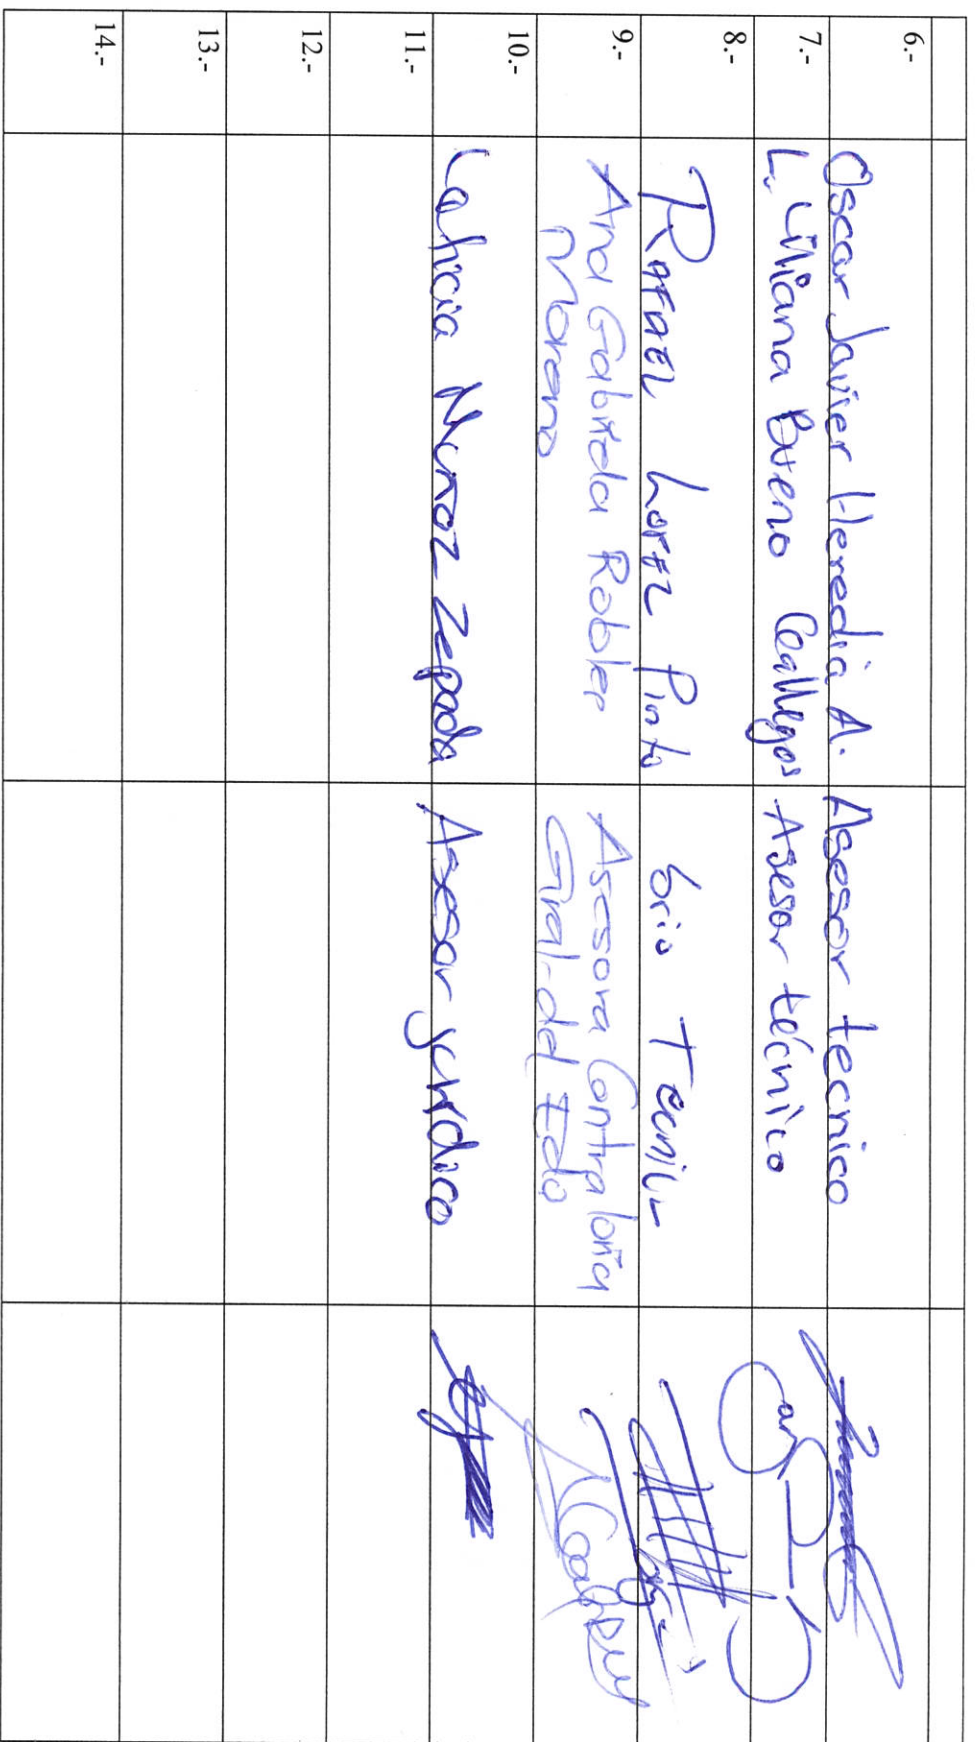 6.- Oscar Javier Heredia A. Asesor tecnico
7.- L. Liliana Bueno Gallegos Asesor técnico
8.- RAFAEL LOPEZ Pinto Srio Tecnic
9.- Ana Gabriela Robles Asesora Contraloria
Moreno Gral. del Edo
10.-
Muñoz Zepeda Asesor jurídico
11.-
12.-
13.-
14.-